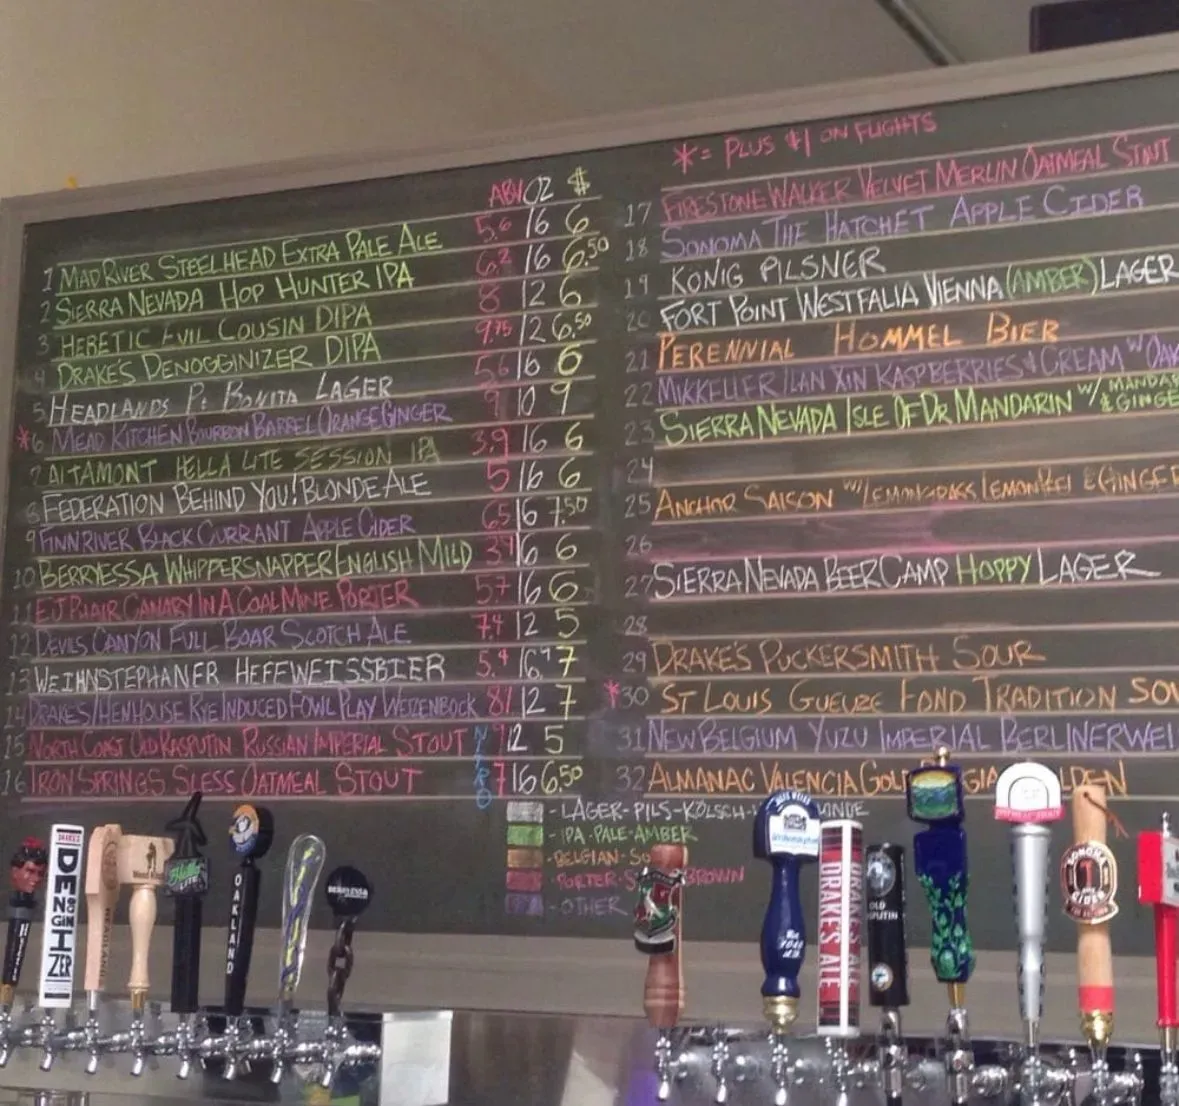 ABV OZ $
1 MAD RIVER STEELHEAD EXTRA PALE ALE 5.6 16 6
2 SIERRA NEVADA HOP HUNTER IPA 6.2 16 6.50
3 HERETIC EVIL COUSIN DIPA 8 12 6
4 DRAKE'S DENOGGINIZER DIPA 9.75 12 6.50
5 HEADLANDS Pt BONITA LAGER 5.6 16 6
*6 MEAD KITCHEN BOURBON BARREL ORANGE GINGER 9 10 9
7 ALTAMONT HELLA LITE SESSION IPA 3.9 16 6
8 FEDERATION BEHIND YOU! BLONDE ALE 5 16 6
9 FINNRIVER BLACK CURRANT APPLE CIDER 6.5 16 7.50
10 BERRYESSA WHIPPERSNAPPER ENGLISH MILD 16 6
11 EJ PHAIR CANARY IN A COAL MINE PORTER 5.7 16 6
12 DEVILS CANYON FULL BOAR SCOTCH ALE 7.4 12 5
13 WEIHNSTEPHANER HEFFWEISSBIER 5.4 16.9 7
14 DRAKES/HENHOUSE RYE INDUCED FOWL PLAY WEIZENBOCK 8.1 12 7
15 NORTH COAST OLD RASPUTIN RUSSIAN IMPERIAL STOUT 9 12 5
16 IRON SPRINGS SLESS OATMEAL STOUT 7 16 6.50
NITRO
*= PLUS $1 ON FLIGHTS
17 FIRESTONE WALKER VELVET MERLIN OATMEAL STOUT
18 SONOMA THE HATCHET APPLE CIDER
19 KONIG PILSNER
20 FORT POINT WESTFALIA VIENNA (AMBER) LAGER
21 PERENNIAL HOMMEL BIER
22 MIKKELLER/LAN XIN RASPBERRIES & CREAM W/
23 SIERRA NEVADA ISLE OF DR MANDARIN W/ MANDA
& GINGE
24
25 ANCHOR SAISON W/ LEMONGRASS LEMON PEEL & GINGER
26
27 SIERRA NEVADA BEER CAMP HOPPY LAGER
28
29 DRAKE'S PUCKERSMITH SOUR
*30 ST LOUIS GUEUZE FOND TRADITION SOU
31 NEW BELGIUM YUZU IMPERIAL BERLINERWEI
32 ALMANAC VALENCIA GOL GIA LDEN
- LAGER-PILS-KÖLSCH- NDE
- IPA-PALE-AMBER
- BELGIAN-SO
- PORTER-S BROWN
- OTHER
DRAKES
DENOGGINIZER
HEADLAND
OAKLAND
BERRYESSA
DRAKES ALE
DRAKES ALE
OLD
RASPUTIN
SONOMA
CIDER